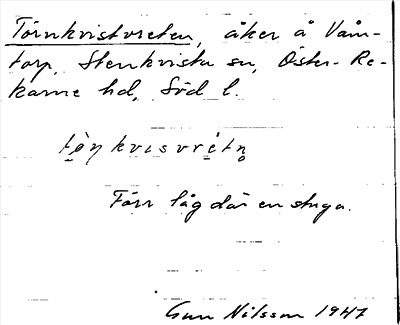 Törnkvistvreten, åker å Våm-
torp, Stenkvista sn, Öster-Re-
karne hd, Söd l.
tö̀ṇkvısvrètn̥
Förr låg där en stuga.
Gun Nilsson 1947